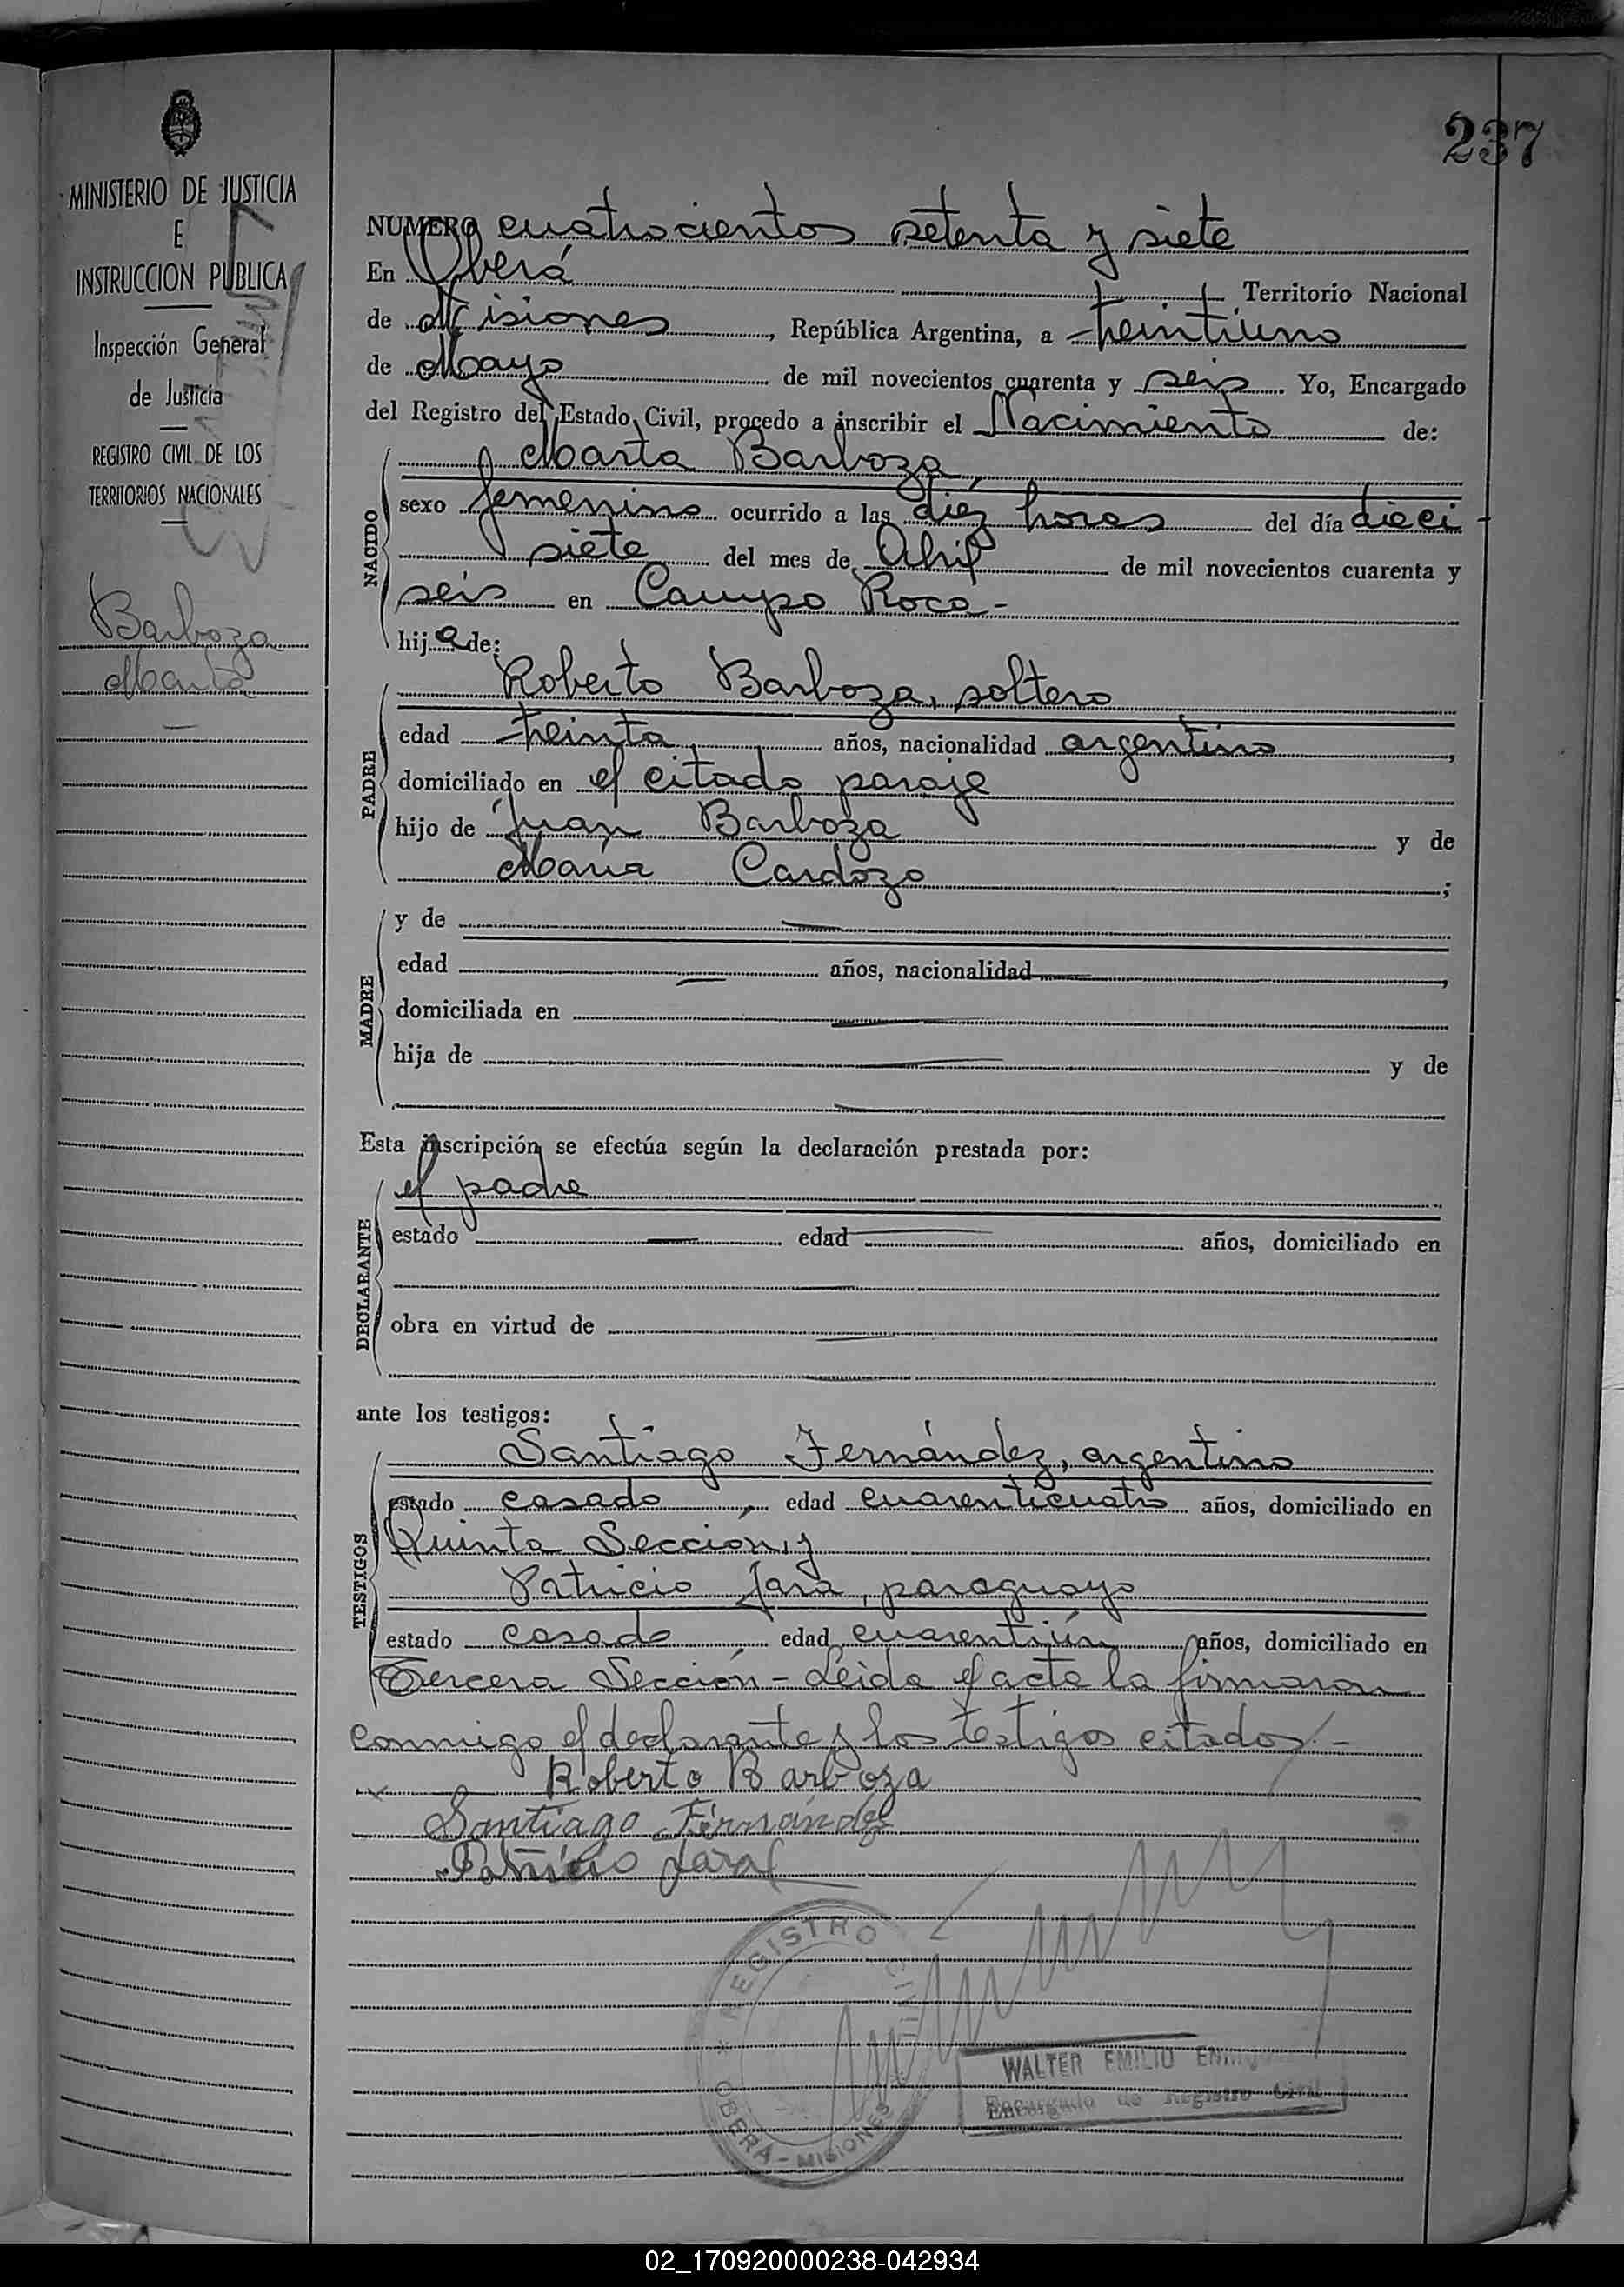 237
MINISTERIO DE JUSTICIA
E
INSTRUCCION PUBLICA
Inspección General
de Justicia
REGISTRO CIVIL DE LOS
TERRITORIOS NACIONALES
Barboza
Marta
NUMERO cuatrocientos setenta y siete
En Oberá Territorio Nacional
de Misiones, República Argentina, a treintiuno
de Mayo de mil novecientos cuarenta y seis. Yo, Encargado
del Registro del Estado Civil, procedo a inscribir el Nacimiento de:
NACIDO
Marta Barboza
sexo femenino ocurrido a las diez horas del día dieci-
siete del mes de Abril de mil novecientos cuarenta y
seis en Campo Roca-
hija de:
PADRE
Roberto Barboza, soltero
edad treinta, años, nacionalidad argentino,
domiciliado en el citado paraje
hijo de Juan Barboza y de
María Cardozo;
MADRE
y de —
edad — años, nacionalidad —,
domiciliada en —
hija de — y de
—
Esta inscripción se efectúa según la declaración prestada por:
DECLARANTE
el padre
estado — edad — años, domiciliado en
—
obra en virtud de —
—
ante los testigos:
TESTIGOS
Santiago Fernández, argentino
estado casado, edad cuarenticuatro años, domiciliado en
Quinta Sección, y
Patricio Jara, paraguayo
estado casado, edad cuarentiún años, domiciliado en
Tercera Sección - Leida el acta la firmaron
conmigo el declarante y los testigos citados.-
x Roberto Barboza
Santiago Fernández
Patricio Jara
REGISTRO CIVIL
OBERA - MISIONES
WALTER EMILIO
Encargado de Registro Civil
02_170920000238-042934